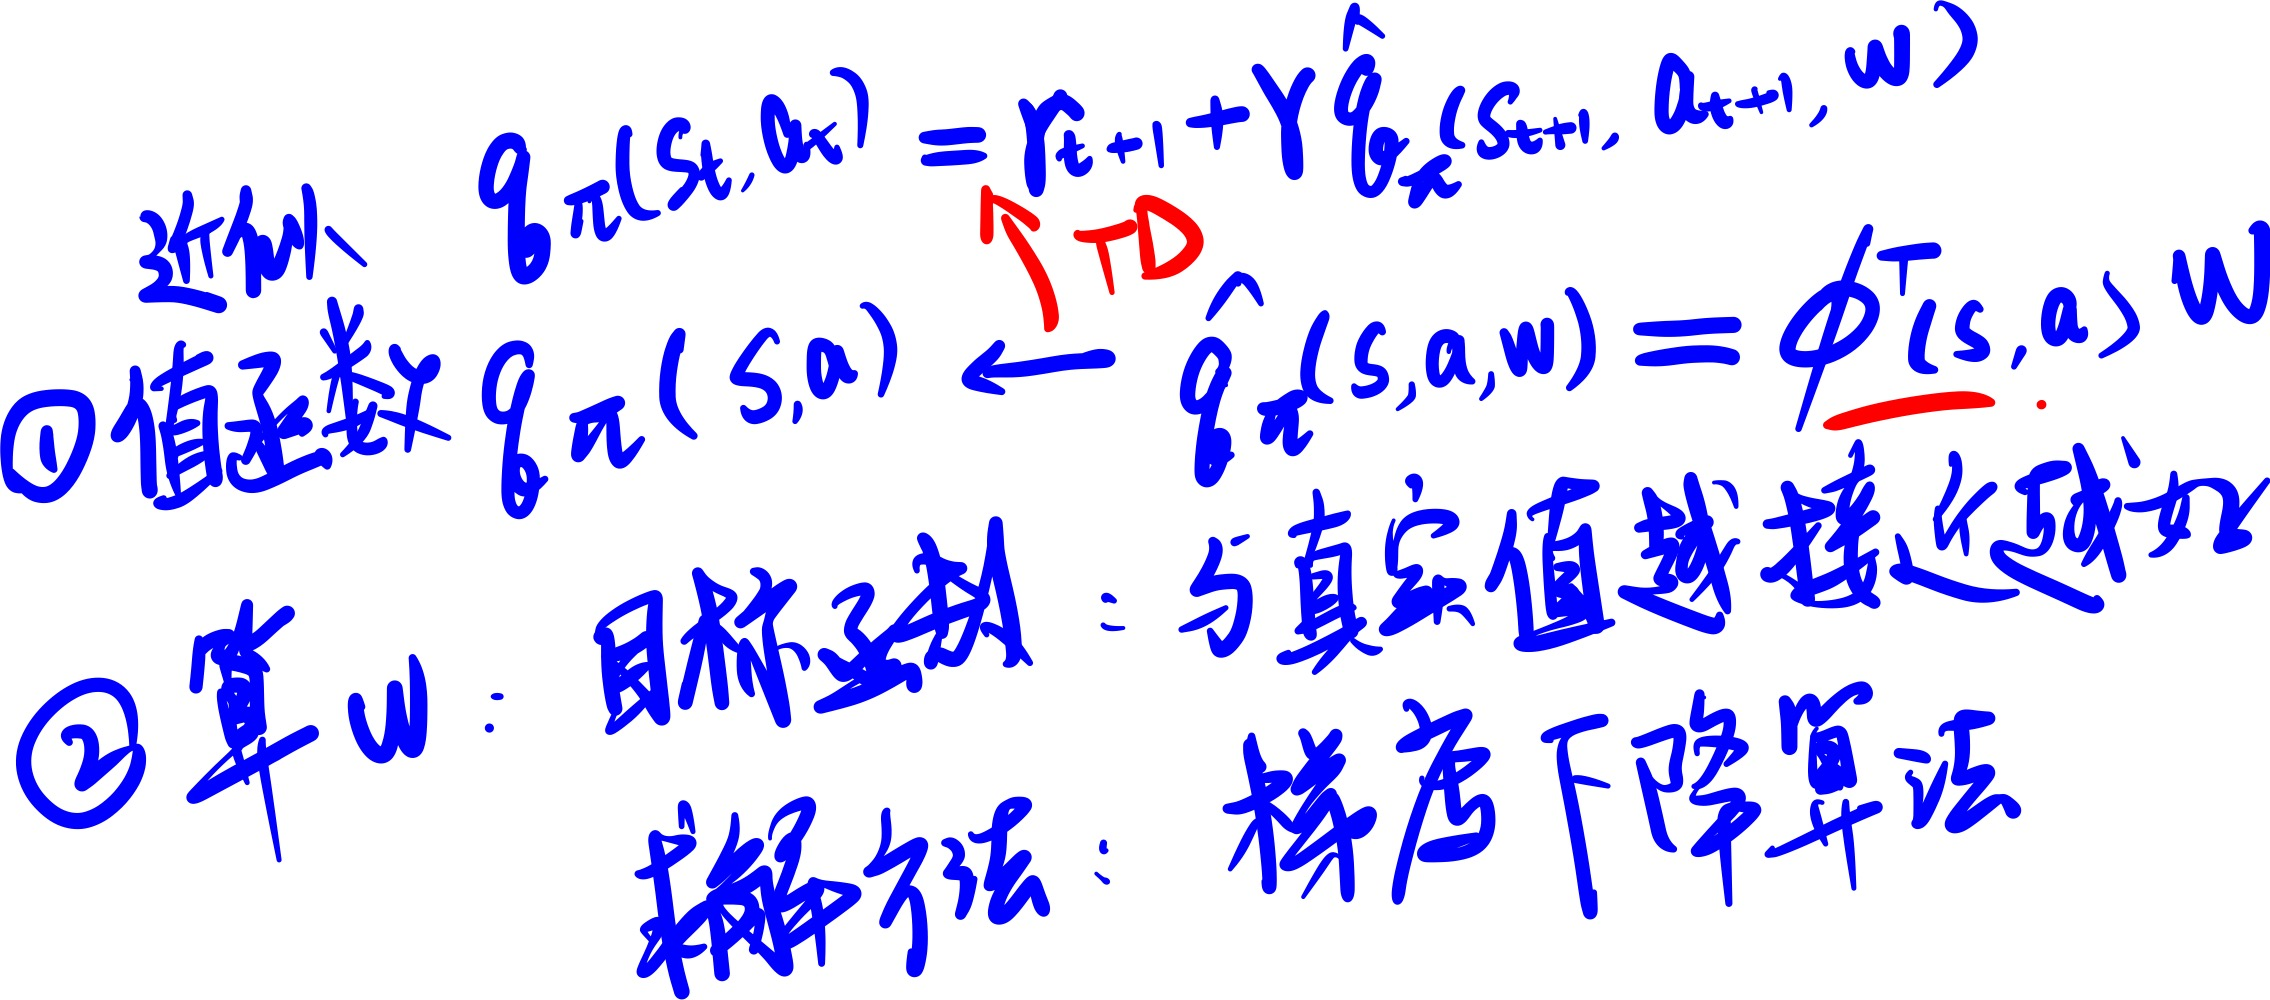 q_π(s_t, a_t) = r_{t+1} + γ q̂_π(s_{t+1}, a_{t+1}, w)
近似 TD
① 值函数 q_π(s, a) ← q̂_π(s, a, w) = φ^T(s, a) w
② 算 w : 目标函数 : 与真实值越接近越好
求解方法 : 梯度下降算法